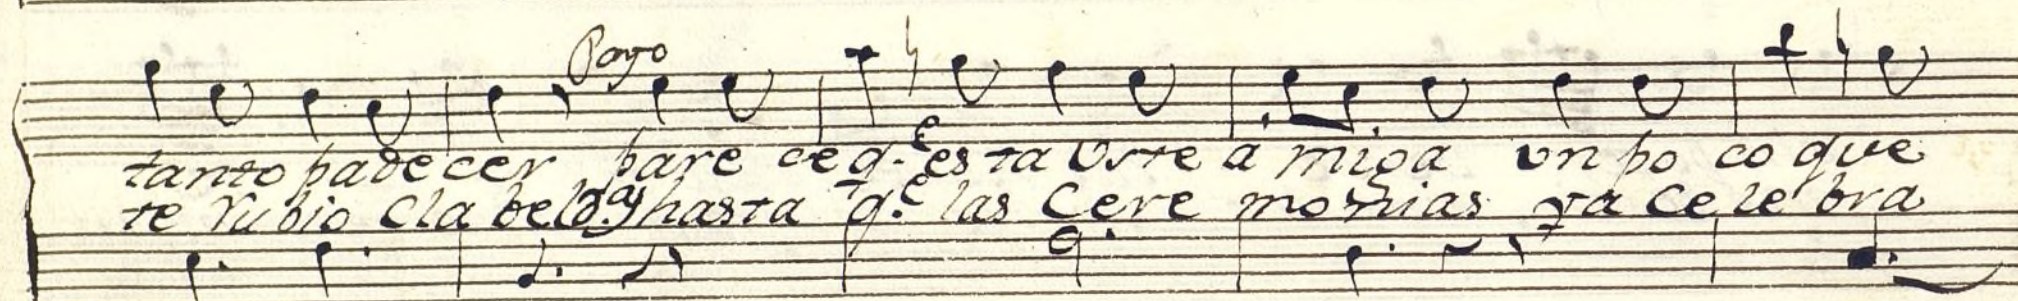 Payo
tanto padecer pare ce q.e esta Uste amiga un po co que
te rubio Cla bel (2.as) hasta q.e las Cere monias ya Ce le bra